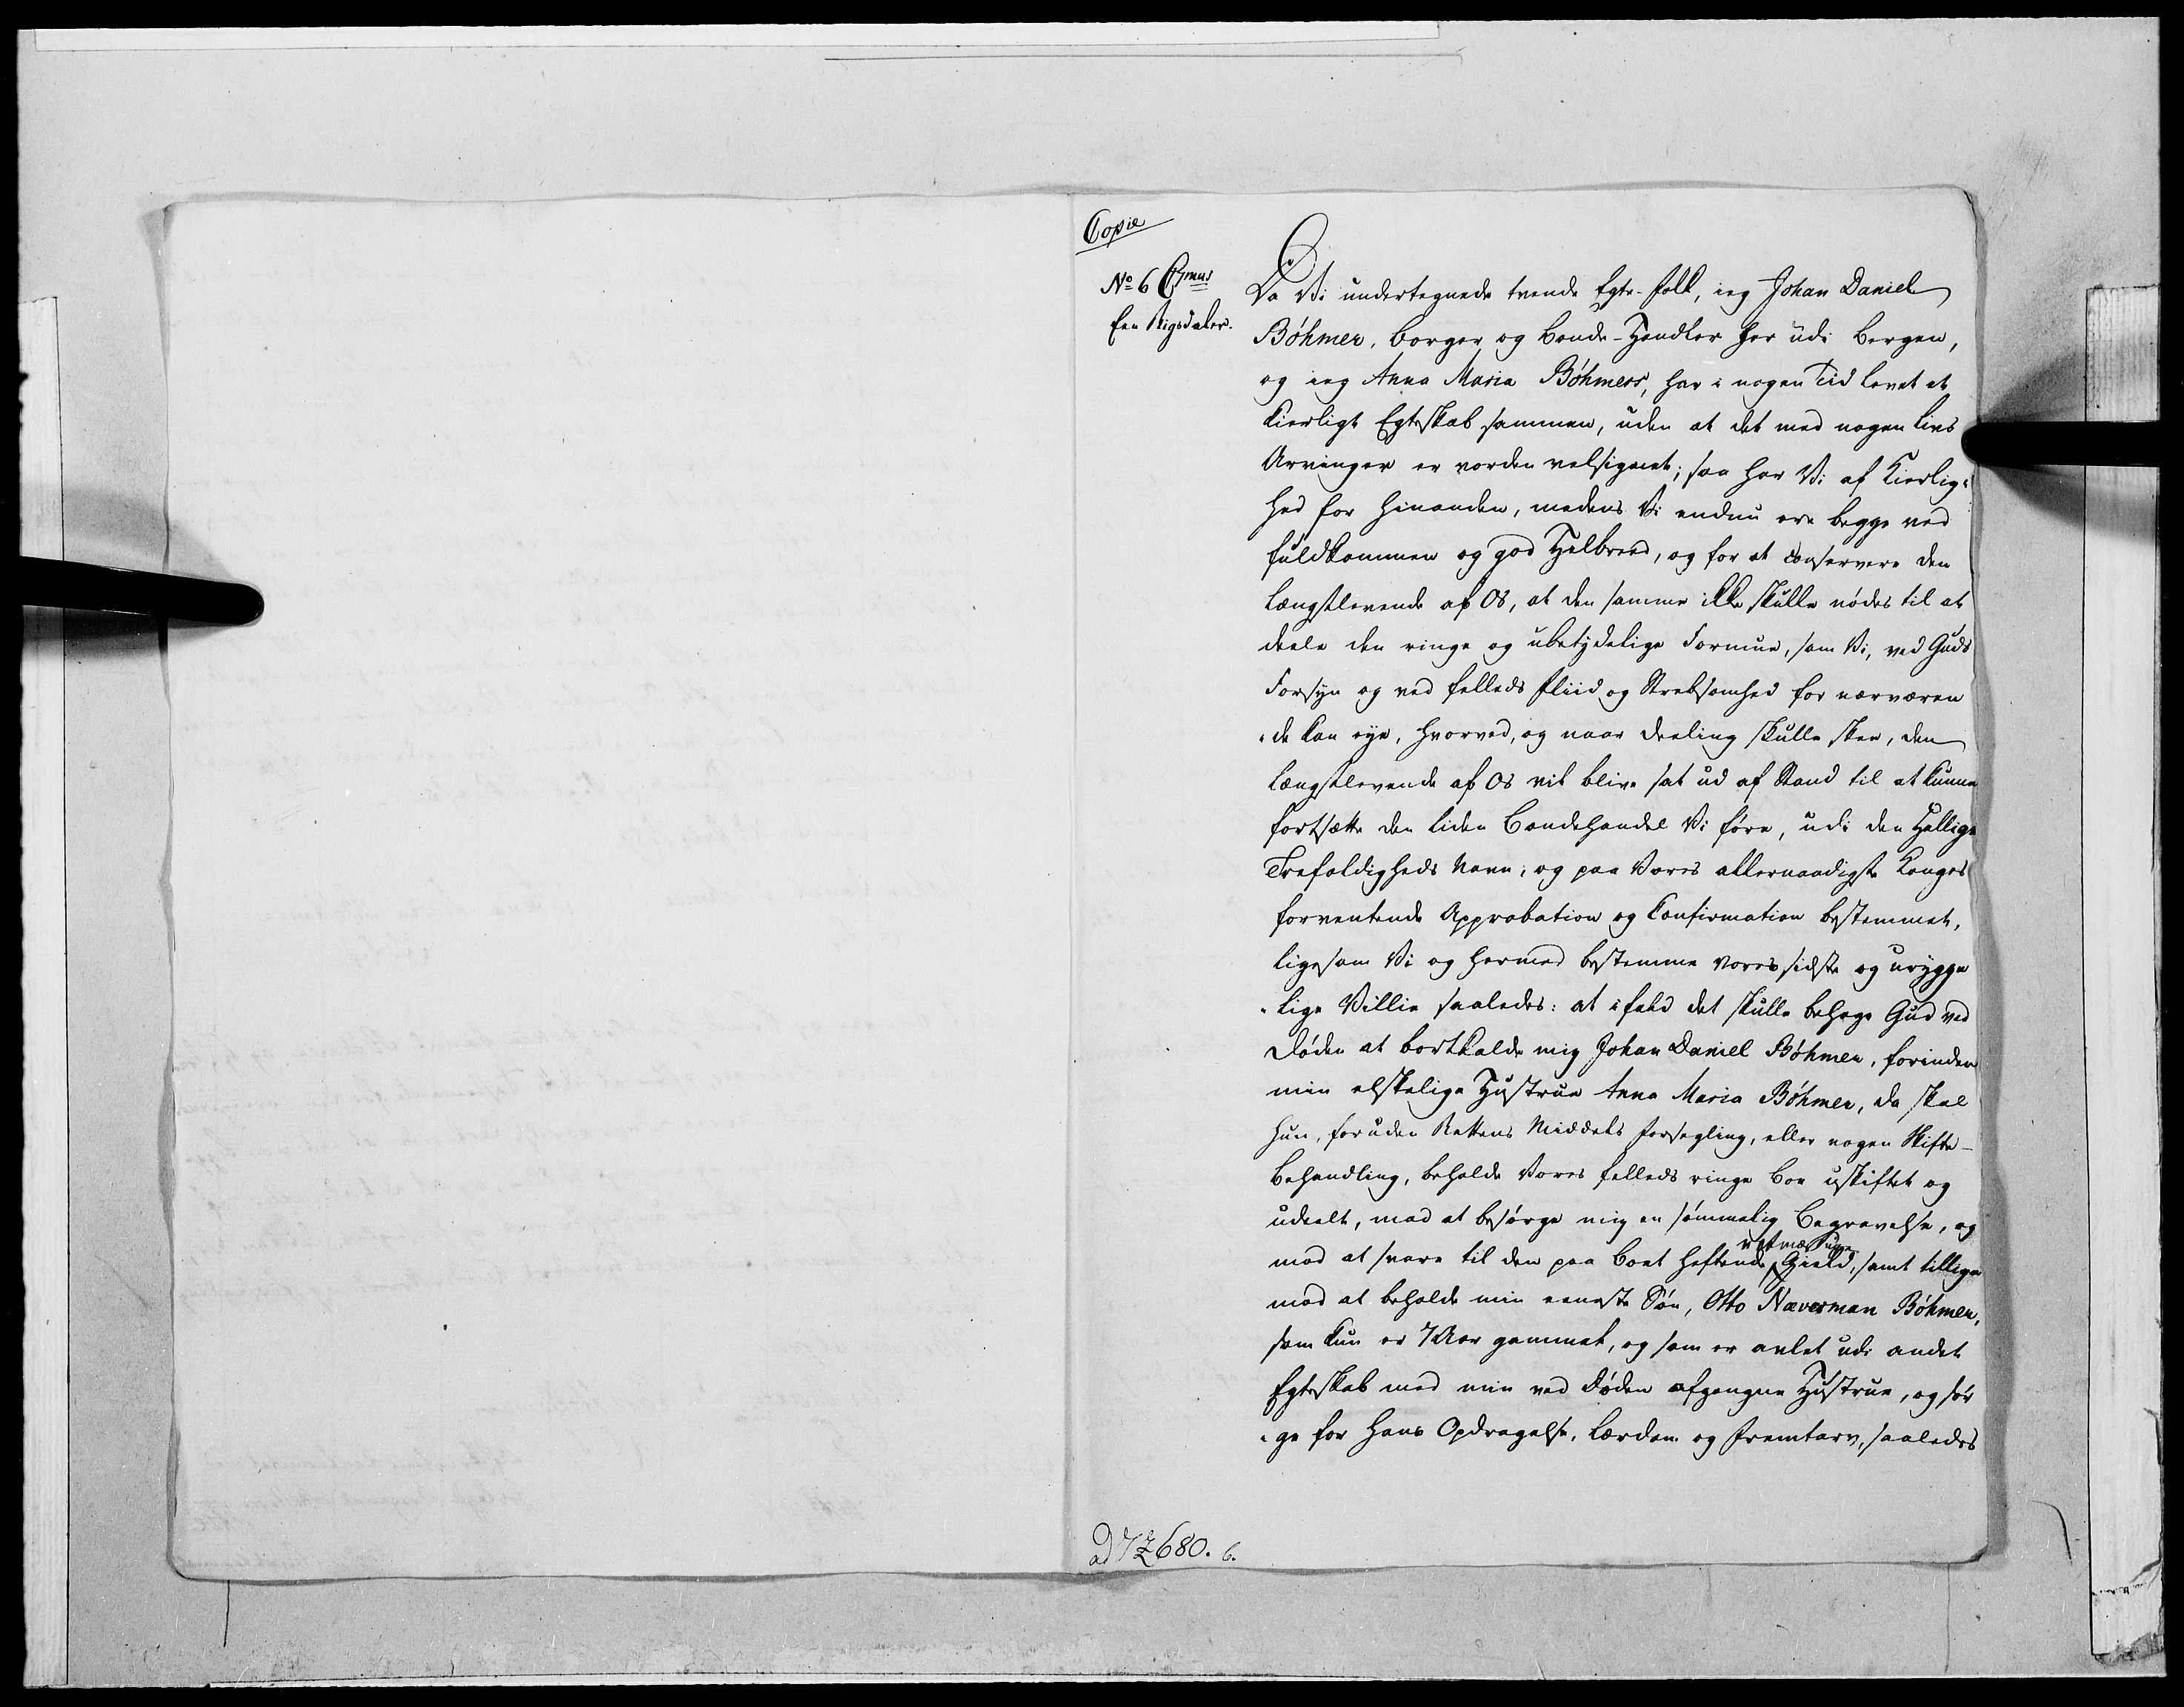 Copie
No 6 Csmus
Een Rigsdaler.
Da Vi undertegnede tvende Egte-folk, ieg Johan Daniel
Bøhmer, borger og bonde-Handler her udi Bergen,
og ieg Anna Maria Bøhmers, har i nogen Tid levet et
kierligt Egteskab sammen, uden at det med nogen livs
Arvinger er vorden velsignet; saa har Vi af Kierlig-
hed for hinanden, medens Vi endnu ere begge ved
fuldkommen og god Helbreed, og for at conservere den
længstlevende af Os, at den samme ikke skulle nødes til at
deele den ringe og ubetydelige Formue, som Vi, ved Guds
Forsyn og ved felleds fliid og Stræbsomhed for nærværen
-de kan eye, hvorved, og naar deeling skulle skee, den
længstlevende af Os vil blive sat ud af Stand til at kunne
fortsætte den liden bondehandel Vi føre, udi den Hellige
Trefoldigheds Navn, og paa Vores allernaadigste Konges
forventende Approbation og Confirmation bestemmet,
ligesom Vi og hermed bestemme vores sidste og urygge
-lige Villie saaledes: at ifald det skulle behage Gud ved
Døden at bortkalde mig Johan Daniel Bøhmer, forinden
min elskelige Hustrue Anna Maria Bøhmer, da skal
hun, foruden Rettens Middels forsegling, eller nogen Skifte-
behandling, beholde Vores felleds ringe boe uskiftet og
udeelt, mod at besørge mig en sømmelig Begravelse, og
mod at svare til den paa boet heftende retmæssige Gield, samt tillige
mod at beholde min eeneste Søn, Otto Næverman Bøhmer,
som kun er 7 Aar gammel, og som er avlet udi andet
Egteskab med min ved Døden afgangne Hustrue, og sør
-ge for hans Opdragelse, lærdom og fremtarv, saaledes
ad 7 Z 680. b.